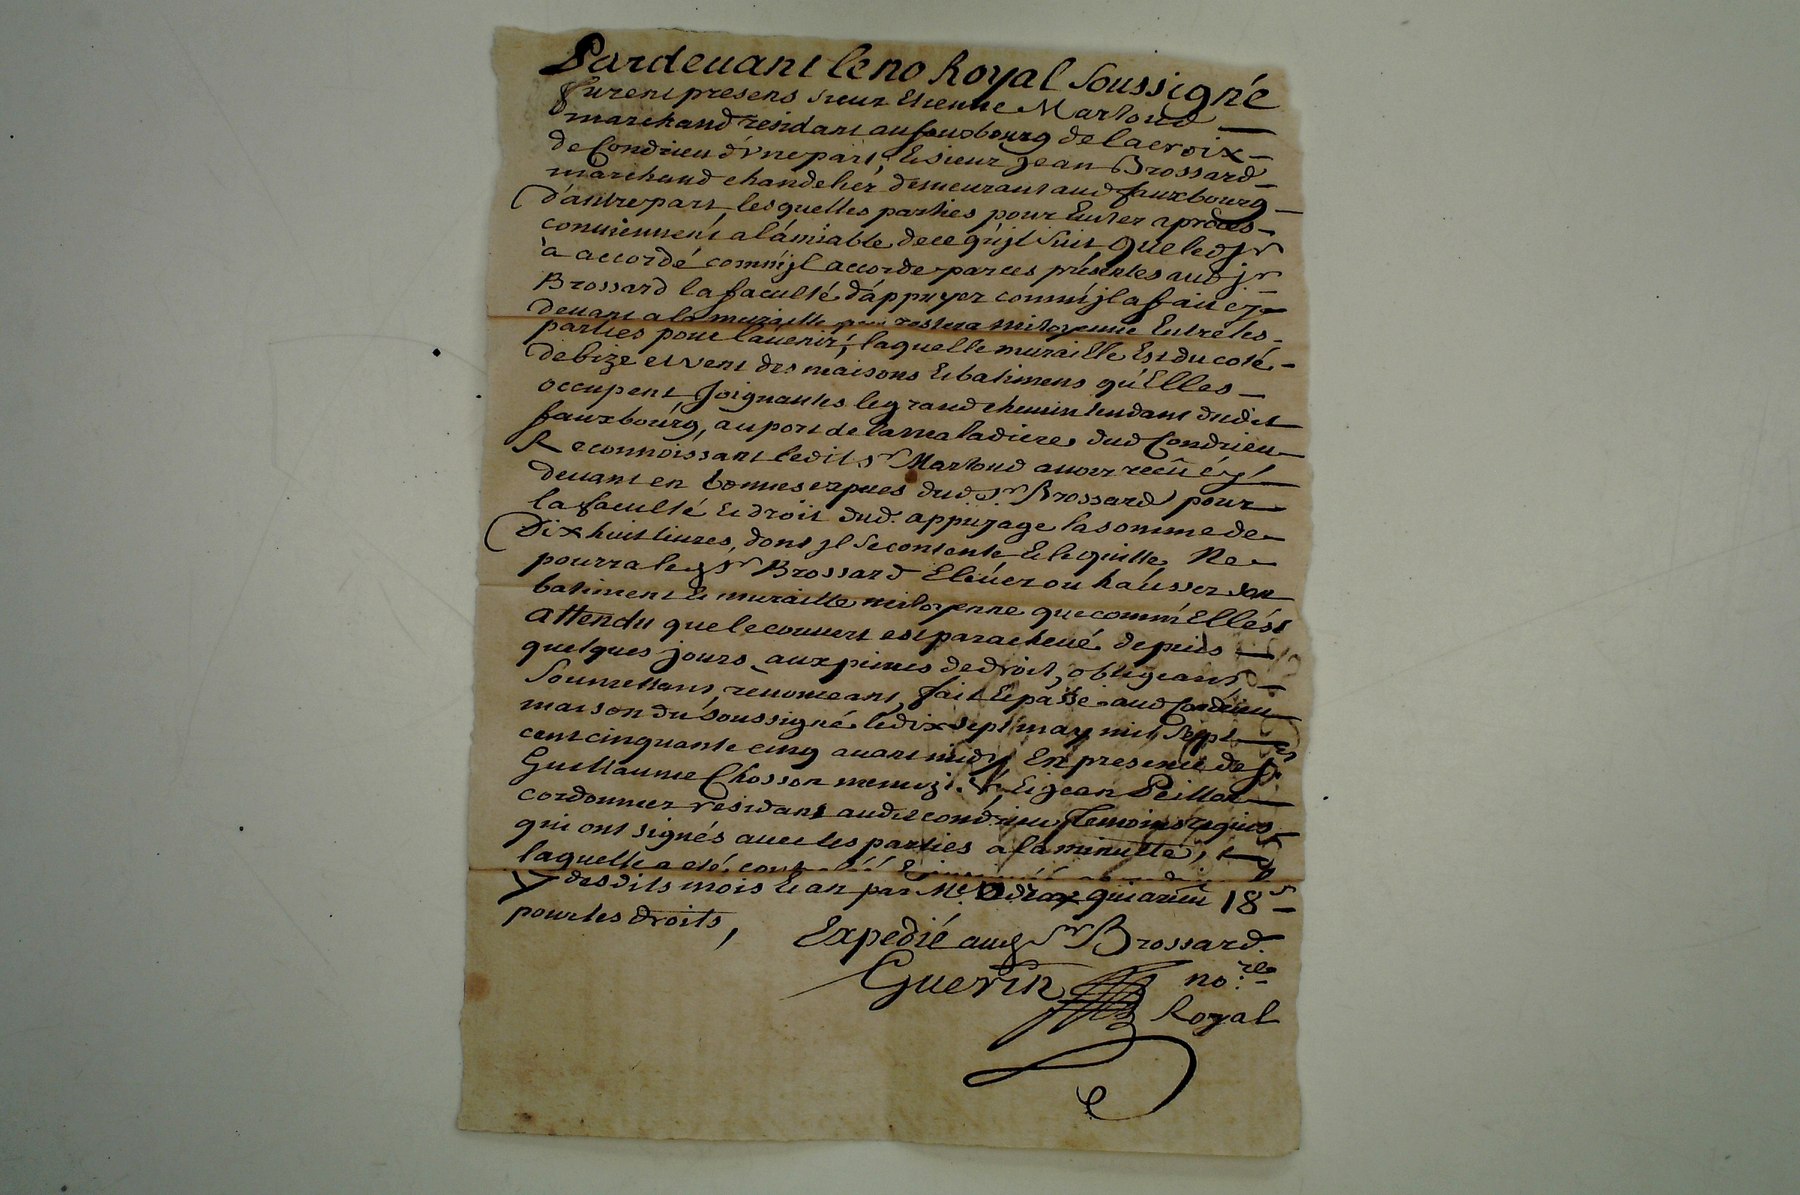 Pardevant le no Royal soussigné
furent presens sieur Etienne Marloud
marchand residant au fauxbourg de la croix
de Condrieu d'une part, & sieur jean Brossard
marchand chandelier demeurant aud fauxbourg
d'autre part, lesquelles parties pour Eviter a procès
conviennent a l'amiable de ce qu'jl suit que led sr
à accordé comm'jl accorde par ces présentes aud sr
Brossard la faculté d'appuyer comm'jl a fait cy
devant a la muraille restera mitoyenne Entre les
parties pour l'avenir, laquelle muraille Est du coté
de bize et vent des maisons & batimens qu'Elles
occupent joignantes le grand chemin tendant dudit
fauxbourg, au port de la maladiere dud Condrieu
Reconnoissant ledit sr Marloud avoir recû cy
devant en bonnes espues dud. sr Brossard pour
la faculté & droit dud. appuyage la somme de
Dix huit livres, dont jl se contente & le quitte Ne
pourra led sr Brossard Elever ou hausser son
batiment & muraille mitoyenne que comm'Elle est
attendu que le couvert est parachevé depuis
quelques jours, aux peines de droit, obligeant,
soumettant, renonceant, fait & passé aud Condrieu
maison du soussigné le dix sept may mil sept
cent cinquante cinq avant midy En presence de
Guillaume Chosson & jean Peillon
cordonnier residant audit condrieu temoins requis
qui ont signés avec les parties a la minutte,
laquelle a eté
desdits mois & an par Me. qui a reçu 18 s
pour les droits,
Expedié aud sr Brossard.
Guerin no.re
Royal